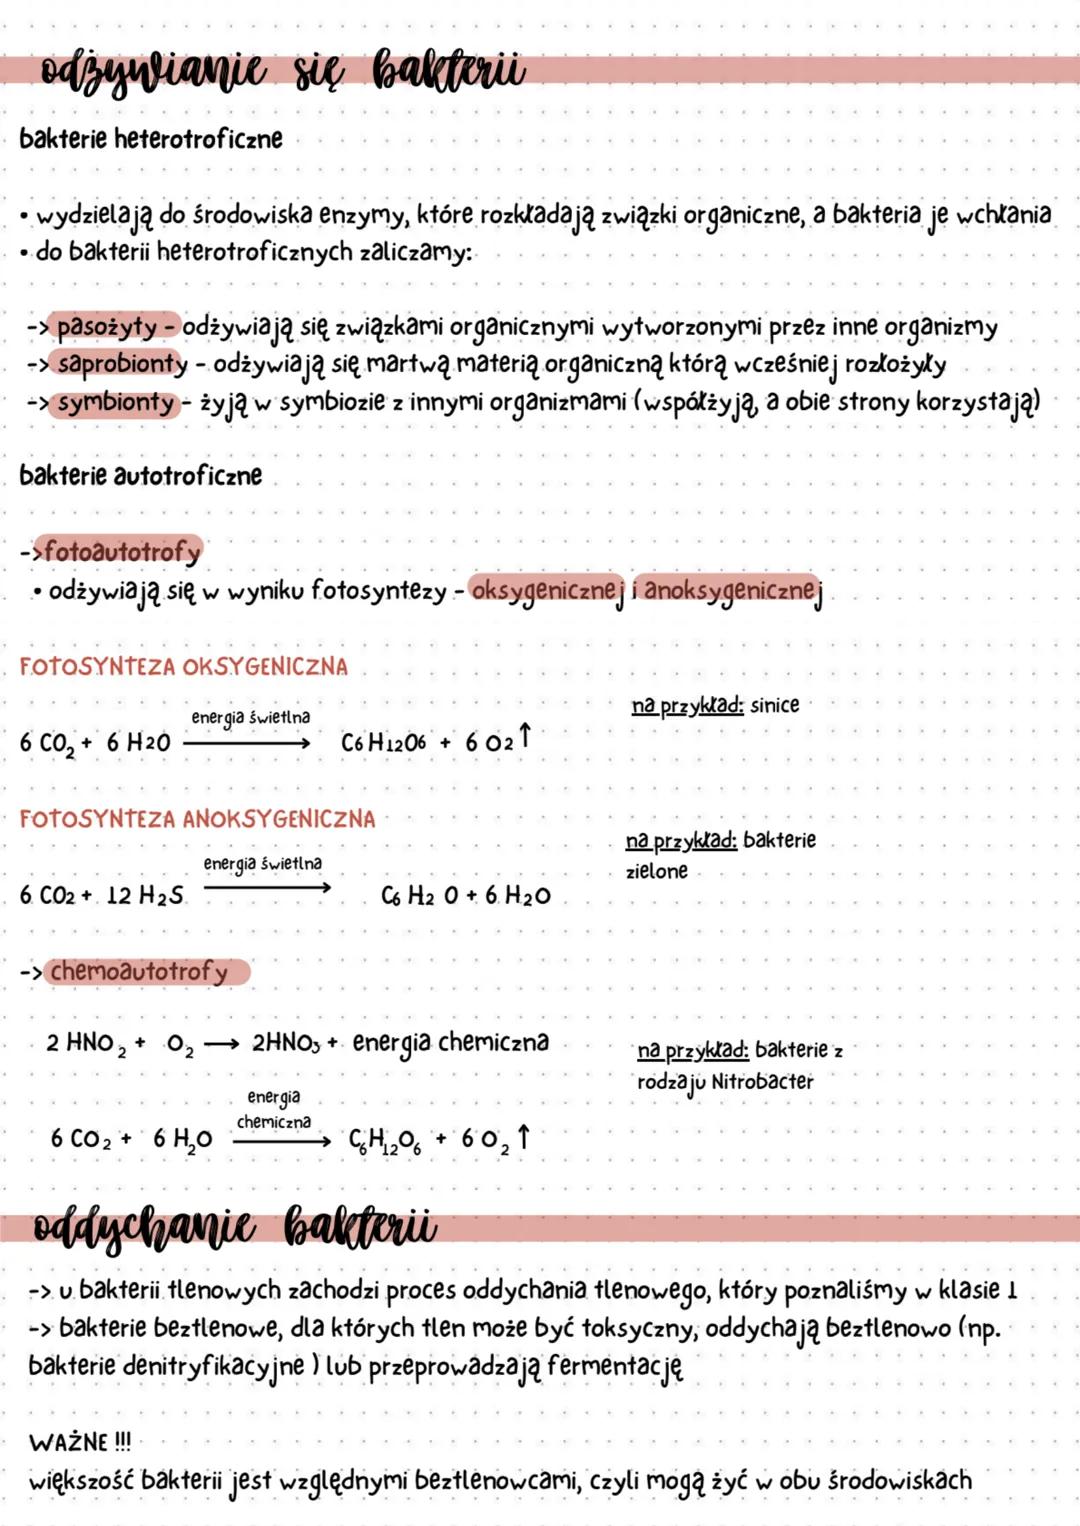 odżywianie się bakterii
bakterie heterotroficzne
• wydzielają do środowiska enzymy, które rozkładają związki organiczne, a bakteria je wchłania
• do bakterii heterotroficznych zaliczamy:
-> pasożyty - odżywiają się związkami organicznymi wytworzonymi przez inne organizmy
-> saprobionty - odżywiają się martwą materią organiczną którą wcześniej rozłożyły
-> symbionty - żyją w symbiozie z innymi organizmami (współżyją, a obie strony korzystają)
bakterie autotroficzne
->fotoautotrofy
• odżywiają się w wyniku fotosyntezy - oksygenicznej i anoksygenicznej
FOTOSYNTEZA OKSYGENICZNA
na przykład: sinice
energia świetlna
6 CO₂ + 6 H2O ⟶ C6H12O6 + 6 O2↑
FOTOSYNTEZA ANOKSYGENICZNA
na przykład: bakterie
zielone
energia świetlna
6 CO2 + 12 H2S ⟶ C6 H2 O + 6 H2O
-> chemoautotrofy
2 HNO₂ + O₂ ⟶ 2HNO₃ + energia chemiczna
na przykład: bakterie z
rodzaju Nitrobacter
energia
chemiczna
6 CO₂ + 6 H₂O ⟶ C₆H₁₂O₆ + 6 O₂ ↑
oddychanie bakterii
-> u bakterii tlenowych zachodzi proces oddychania tlenowego, który poznaliśmy w klasie 1
-> bakterie beztlenowe, dla których tlen może być toksyczny, oddychają beztlenowo (np.
bakterie denitryfikacyjne ) lub przeprowadzają fermentację
WAŻNE !!!
większość bakterii jest względnymi beztlenowcami, czyli mogą żyć w obu środowiskach